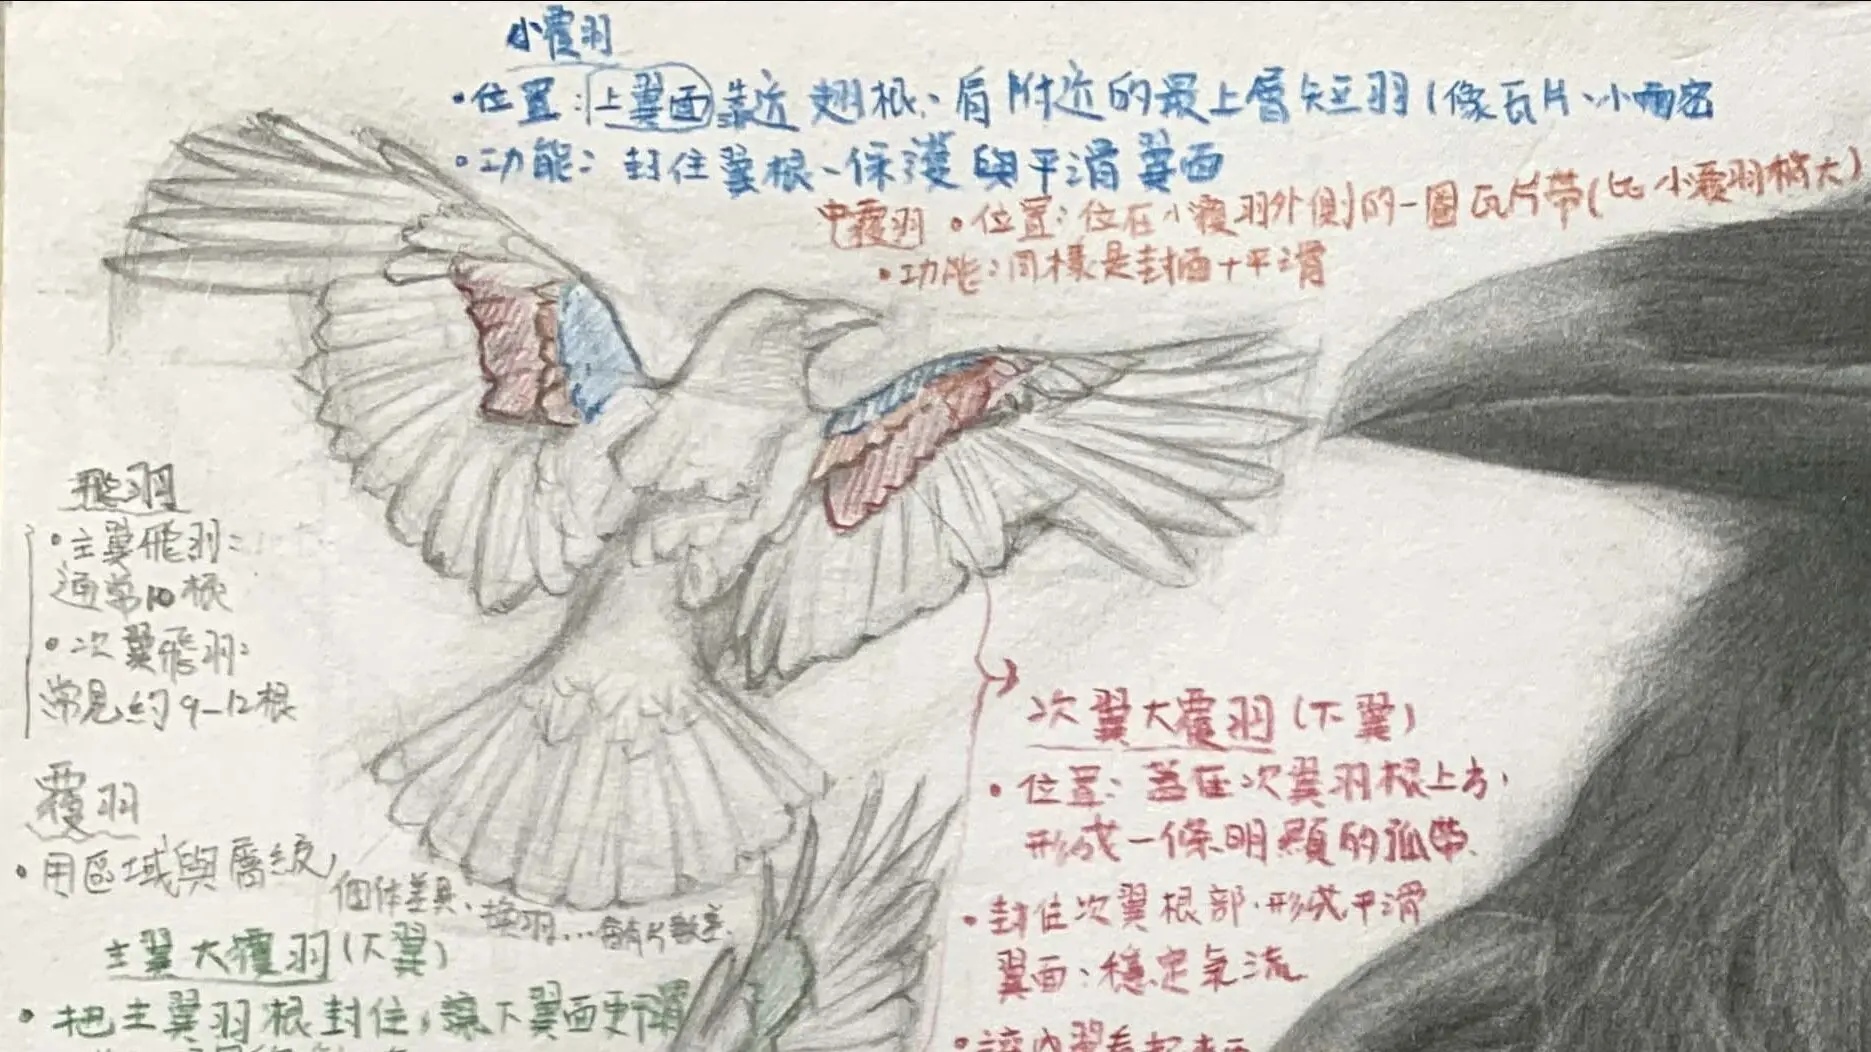 小覆羽
•位置:上翼面靠近翅根、肩附近的最上層短羽(像瓦片、小而密
•功能:封住翼根、保護與平滑翼面
中覆羽 •位置:位在小覆羽外側的一圈瓦片帶(比小覆羽稍大)
•功能:同樣是封面+平滑
飛羽
•主翼飛羽:
通常10根
•次翼飛羽:
常見約9-12根
覆羽
•用區域與層級,
個体差異、換羽...會有片數差.
主翼大覆羽(下翼)
•把主翼羽根封住,讓下翼面更平滑
次翼大覆羽(下翼)
•位置:蓋在次翼羽根上方,
形成一條明顯的弧帶.
•封住次翼根部.形成平滑
翼面:穩定氣流